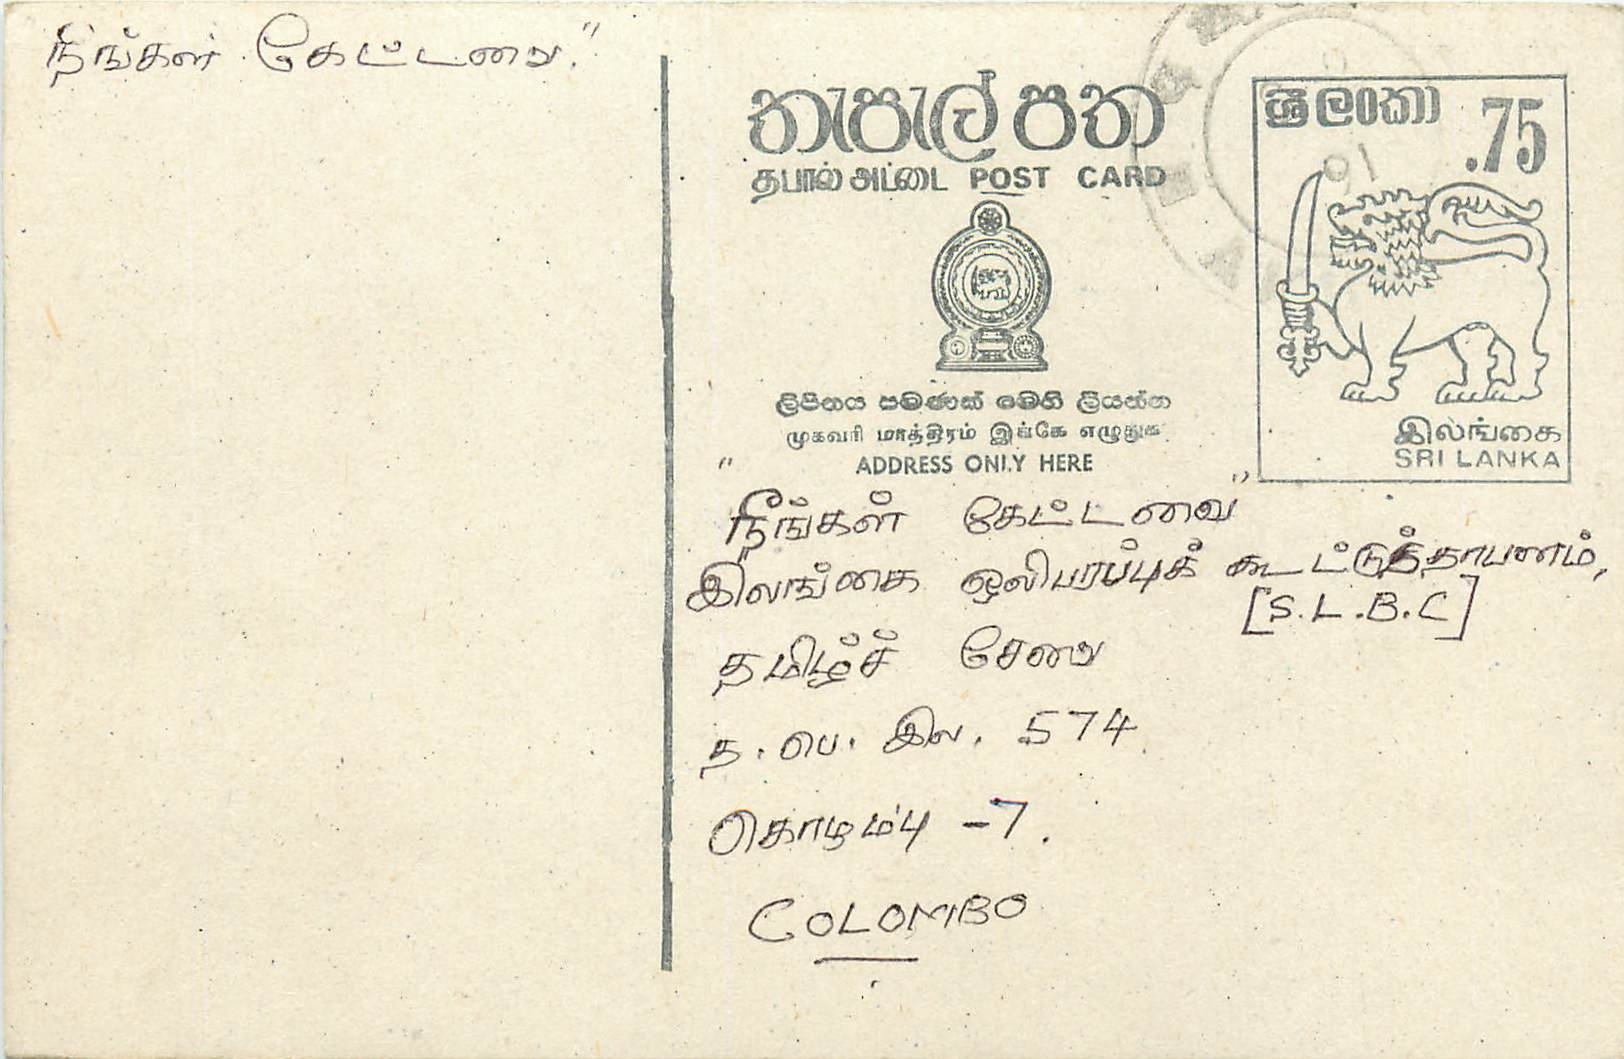 நீங்கள் கேட்டவை."
තැපැල් පත
தபால் அட்டை POST CARD
ශ්‍රී ලංකා .75
ලිපිනය පමණක් මෙහි ලියන්න
முகவரி மாத்திரம் இங்கே எழுதுக
ADDRESS ONLY HERE
இலங்கை
SRI LANKA
"நீங்கள் கேட்டவை"
இலங்கை ஒலிபரப்புக் கூட்டுத்தாபனம்,
[S.L.B.C]
தமிழ்ச் சேவை
த. பெ. இல. 574
கொழம்பு -7.
COLOMBO